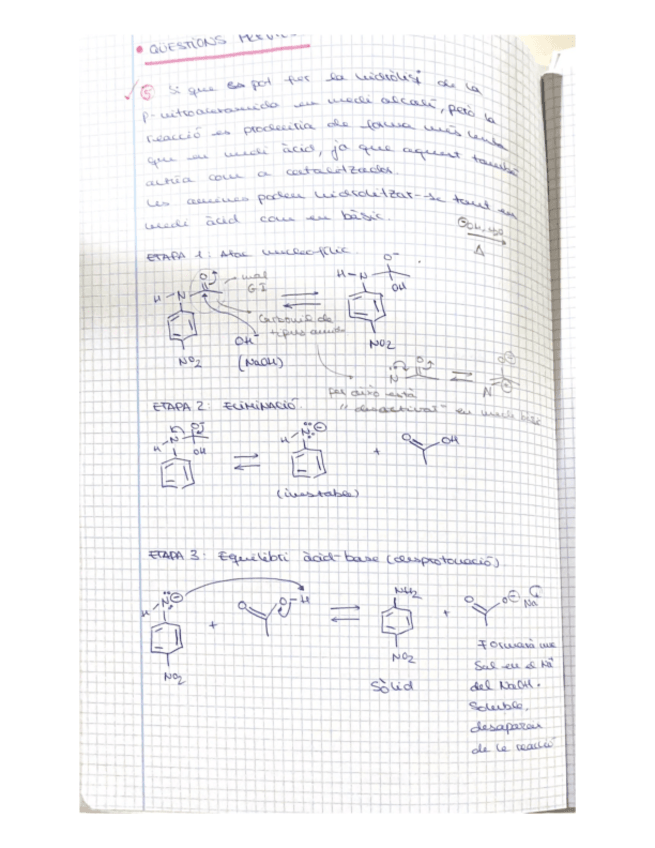 • QÜESTIONS PRÈVIES
⑤ Si que es pot fer la hidròlisi de la
p-nitroacetamida en medi alcalí, però la
reacció es produiria de forma més lenta
que en medi àcid, ja que aquest també
actúa com a catalitzador.
Les amines poden hidrolitzar-se tant en
medi àcid com en bàsic.
OH, H2O
Δ
ETAPA 1: Atac nucleofílic.
O mal
H-N GI
Carbonil de
tipus amida
OH⁻
NO2 (NaOH)
O⁻
H-N
OH
NO2
N O
N
per això està
"desactivat" en medi bàsic
ETAPA 2: ELIMINACIÓ
H N OH
H N ⊖
O OH
+
(inestable)
ETAPA 3: Equilibri àcid-base (desprotonació)
H N ⊖
+
O O-H
NH2
+
O O⊖ Na
NO2
NO2
Sòlid
Formarà una
Sal en el Na⁺
del NaOH.
Soluble,
desapareix
de la reacció